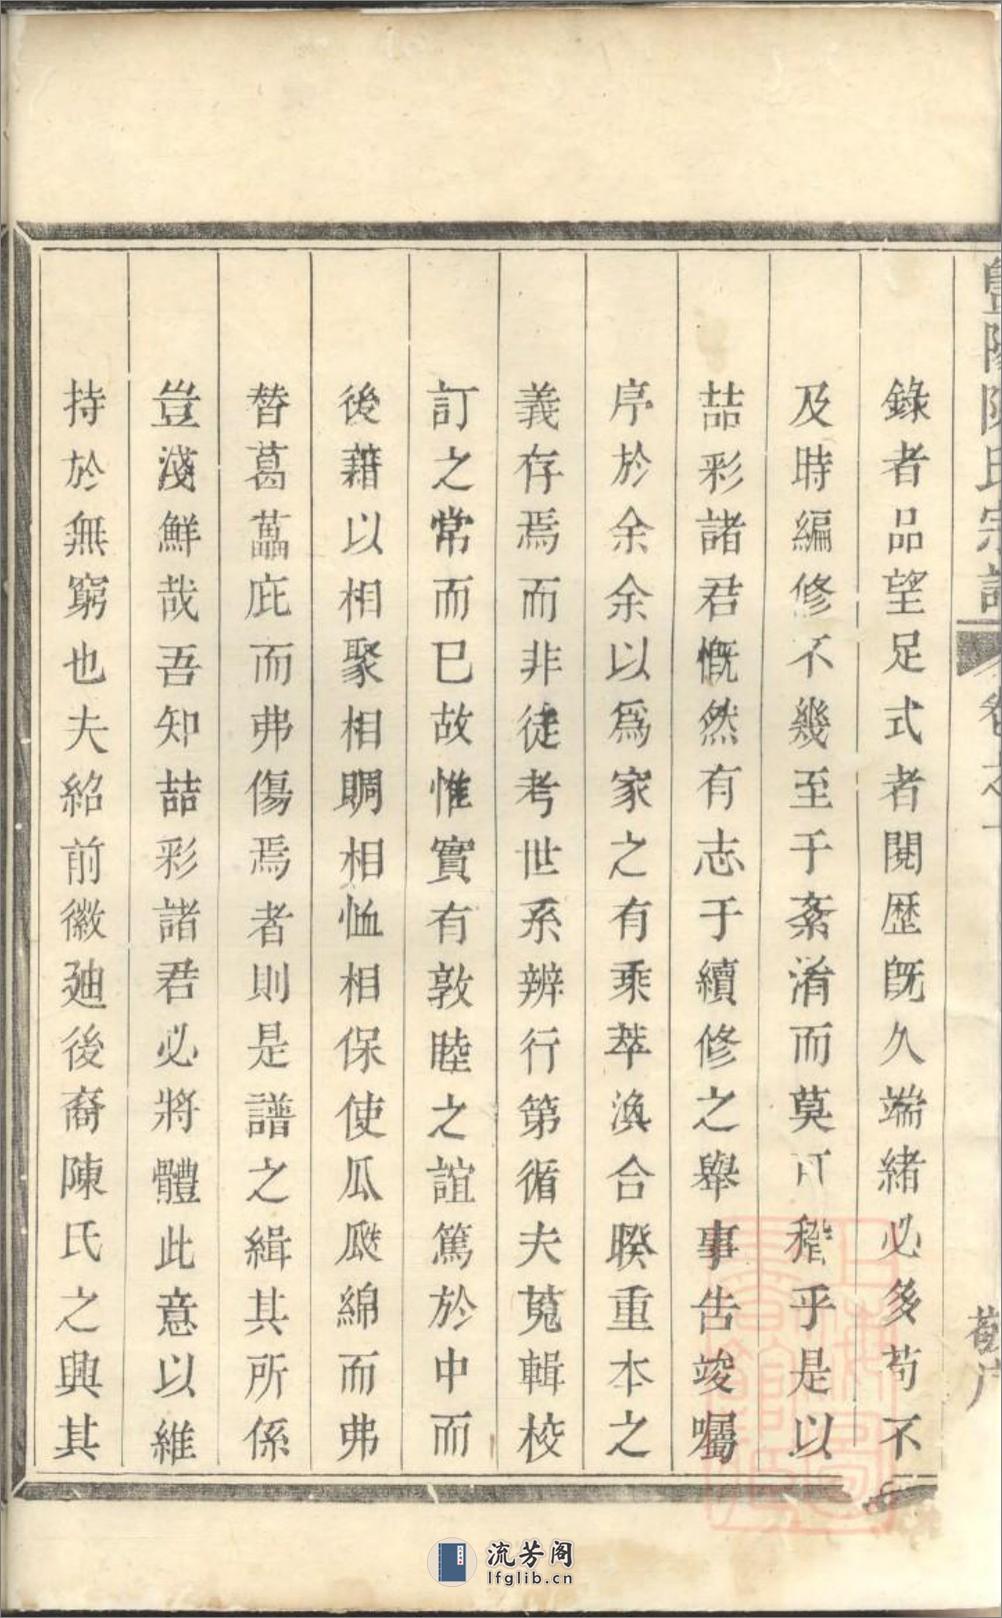 暨陽陳氏宗譜 卷之一
錄者品望足式者閱歷旣久端緒必多苟不
及時編修不幾至于紊淆而莫可稽乎是以
喆彩諸君慨然有志于續修之舉事告竣囑
序於余余以爲家之有乘萃渙合暌重本之
義存焉而非徒考世系辨行第循夫蒐輯校
訂之常而已故惟實有敦睦之誼篤於中而
後藉以相聚相賙相恤相保使瓜瓞綿而弗
替葛藟庇而弗傷焉者則是譜之緝其所係
豈淺鮮哉吾知喆彩諸君必將體此意以維
持於無窮也夫紹前徽廸後裔陳氏之興其
流芳阁
lfglib.cn